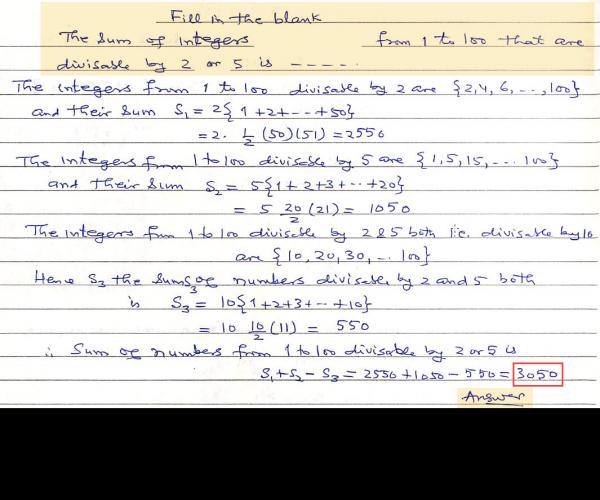 Fill in the blank
The Sum of Integers from 1 to 100 that are
divisable by 2 or 5 is -----.
The integers from 1 to 100 divisable by 2 are {2,4,6,..,100}
and their Sum S₁ = 2{1+2+--+50}
= 2. 1/2 (50)(51) = 2550
The Integers from 1 to 100 divisable by 5 are {1,5,15,... 100}
and their Sum S₂ = 5{1+2+3+--+20}
= 5 20/2 (21) = 1050
The Integers from 1 to 100 divisable by 2 & 5 both i.e. divisable by 10
are {10,20,30,.. 100}
Hence S₃ the Sums of numbers divisable by 2 and 5 both
is S₃ = 10{1+2+3+--+10}
= 10 10/2 (11) = 550
∴ Sum of numbers from 1 to 100 divisable by 2 or 5 is
S₁+S₂-S₃ = 2550+1050-550 = 3050
Answer